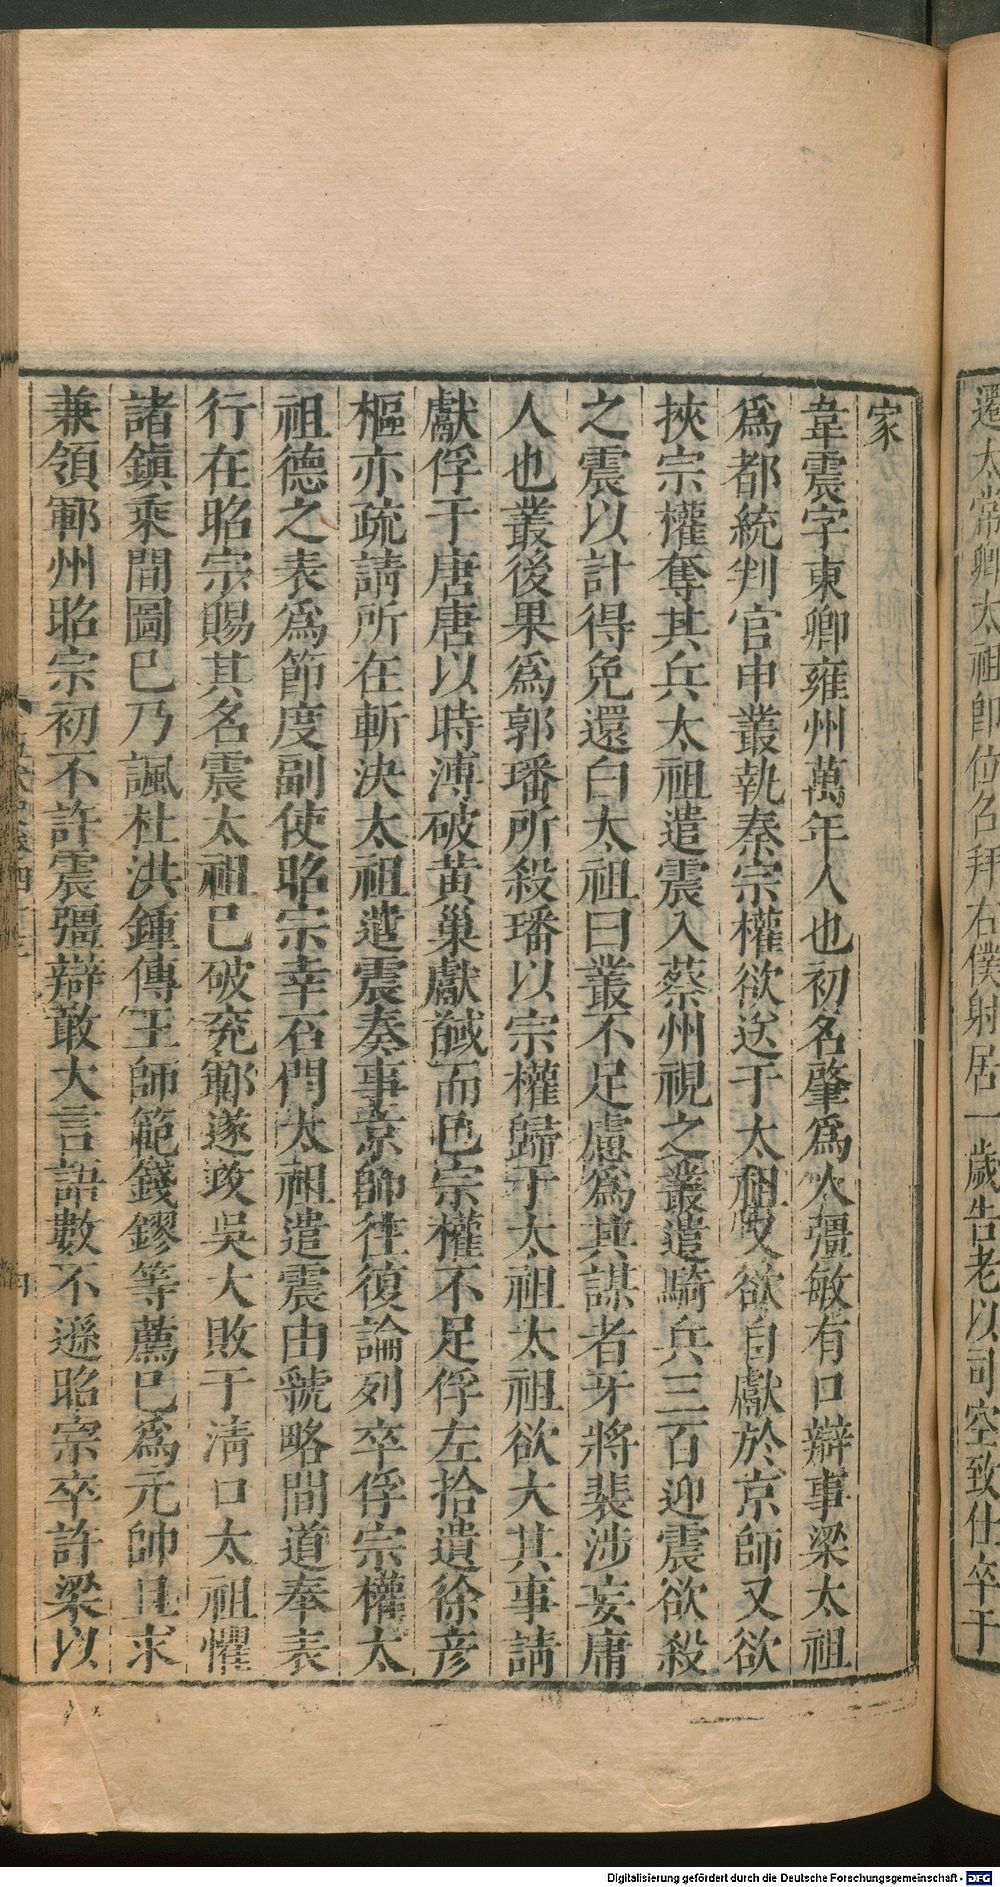 遷太常卿太祖卽位召拜右僕射居一歲告老以司空致仕卒于
家
韋震字東卿雍州萬年人也初名肇爲人彊敏有口辯事梁太祖
爲都統判官申叢執秦宗權欲送于太祖又欲自獻於京師又欲
挾宗權奪其兵太祖遣震入蔡州視之叢遣騎兵三百迎震欲殺
之震以計得免還白太祖曰叢不足慮爲其謀者牙將裴涉妄庸
人也叢後果爲郭璠所殺璠以宗權歸于太祖太祖欲大其事請
獻俘于唐唐以時溥破黃巢獻馘而已宗權不足俘左拾遺徐彥
樞亦疏請所在斬決太祖遣震奏事京師往復論列卒俘宗權太
祖德之表爲節度副使昭宗幸石門太祖遣震由虢略間道奉表
行在昭宗賜其名震太祖已破兗鄆遂攻吳大敗于清口太祖懼
諸鎭乘間圖已乃諷杜洪鍾傳王師範錢鏐等薦已爲元帥且求
兼領鄆州昭宗初不許震彊辯敢大言語數不遜昭宗卒許梁以
Digitalisierung gefördert durch die Deutsche Forschungsgemeinschaft - DFG